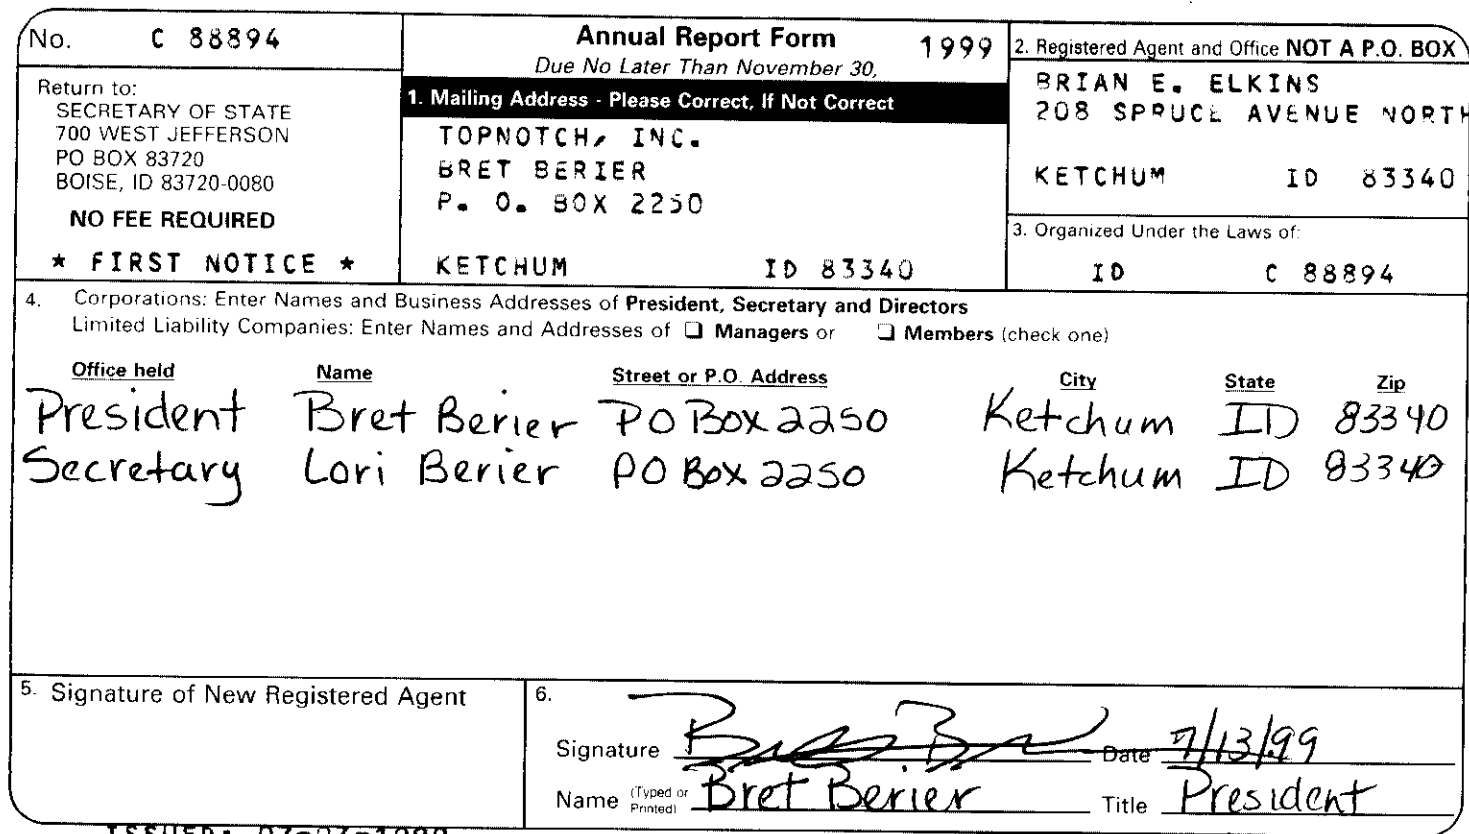 No. C 88894
Return to:
SECRETARY OF STATE
700 WEST JEFFERSON
PO BOX 83720
BOISE, ID 83720-0080
NO FEE REQUIRED
★ FIRST NOTICE ★
Annual Report Form 1999
Due No Later Than November 30,
1. Mailing Address - Please Correct, If Not Correct
TOPNOTCH, INC.
BRET BERIER
P. O. BOX 2250
KETCHUM ID 83340
2. Registered Agent and Office NOT A P.O. BOX
BRIAN E. ELKINS
208 SPRUCE AVENUE NORTH
KETCHUM ID 83340
3. Organized Under the Laws of:
ID C 88894
4. Corporations: Enter Names and Business Addresses of President, Secretary and Directors
Limited Liability Companies: Enter Names and Addresses of ❏ Managers or ❏ Members (check one)
Office held Name Street or P.O. Address City State Zip
President Bret Berier PO Box 2250 Ketchum ID 83340
Secretary Lori Berier PO Box 2250 Ketchum ID 83340
5. Signature of New Registered Agent
6.
Signature Date 7/13/99
Name (Typed or Printed) Bret Berier Title President
ISSUED: